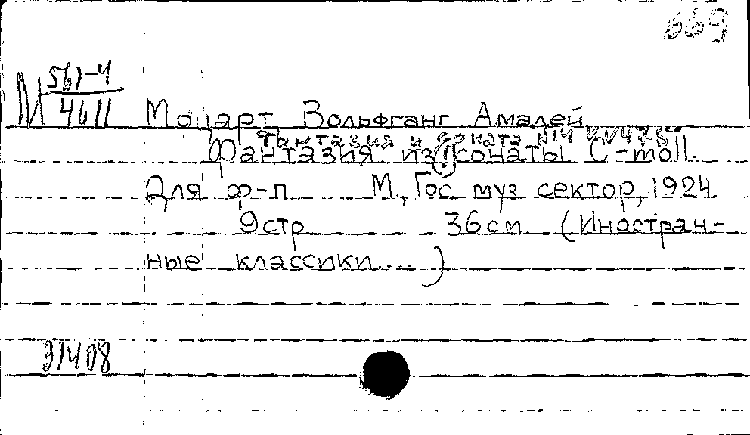 669
М 561-4
4611
Моцарт, Вольфганг Амадей
Фантазия и соната №14 К.
Фантазия из сонаты C-moll.
Для ф-п. М., Гос. муз. сектор, 1924
9 стр. 36 см (Иностран-
ные классики...)
31408